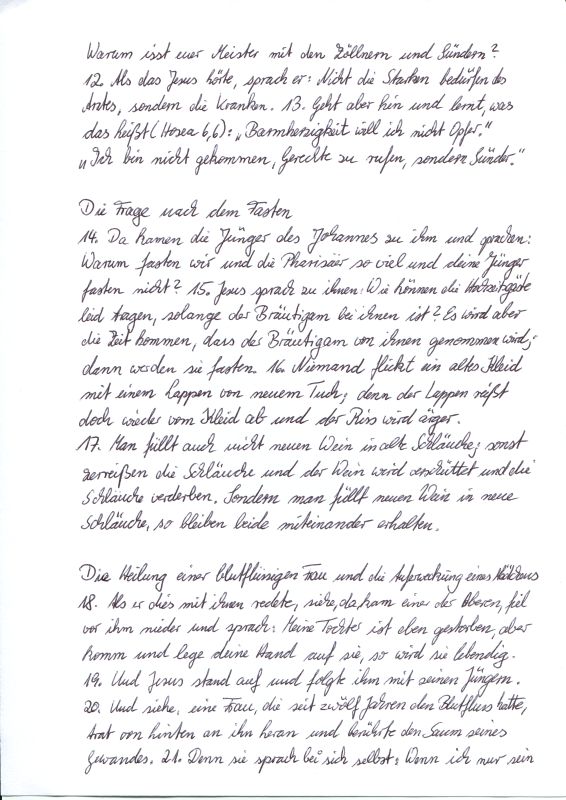 Warum isst euer Meister mit den Zöllnern und Sündern?
12. Als das Jesus hörte, sprach er: Nicht die Starken bedürfen des
Arztes, sondern die Kranken. 13. Geht aber hin und lernt, was
das heißt (Hosea 6,6): „Barmherzigkeit will ich nicht Opfer."
„Ich bin nicht gekommen, Gerechte zu rufen, sondern Sünder."
Die Frage nach dem Fasten
14. Da kamen die Jünger des Johannes zu ihm und sprachen:
Warum fasten wir und die Pharisäer so viel und deine Jünger
fasten nicht? 15. Jesus sprach zu ihnen: Wie können die Hochzeitsgäste
leid tragen, solange der Bräutigam bei ihnen ist? Es wird aber
die Zeit kommen, dass der Bräutigam von ihnen genommen wird;
dann werden sie fasten. 16. Niemand flickt ein altes Kleid
mit einem Lappen von neuem Tuch; denn der Lappen reißt
doch wieder vom Kleid ab und der Riss wird ärger.
17. Man füllt auch nicht neuen Wein in alte Schläuche; sonst
zerreißen die Schläuche und der Wein wird verschüttet und die
Schläuche verderben. Sondern man füllt neuen Wein in neue
Schläuche, so bleiben beide miteinander erhalten.
Die Heilung einer blutflüssigen Frau und die Auferweckung eines Mädchens
18. Als er dies mit ihnen redete, siehe, da kam einer der Oberen, fiel
vor ihm nieder und sprach: Meine Tochter ist eben gestorben, aber
komm und lege deine Hand auf sie, so wird sie lebendig.
19. Und Jesus stand auf und folgte ihm mit seinen Jüngern.
20. Und siehe, eine Frau, die seit zwölf Jahren den Blutfluss hatte,
trat von hinten an ihn heran und berührte den Saum seines
Gewandes. 21. Denn sie sprach bei sich selbst: Wenn ich nur sein